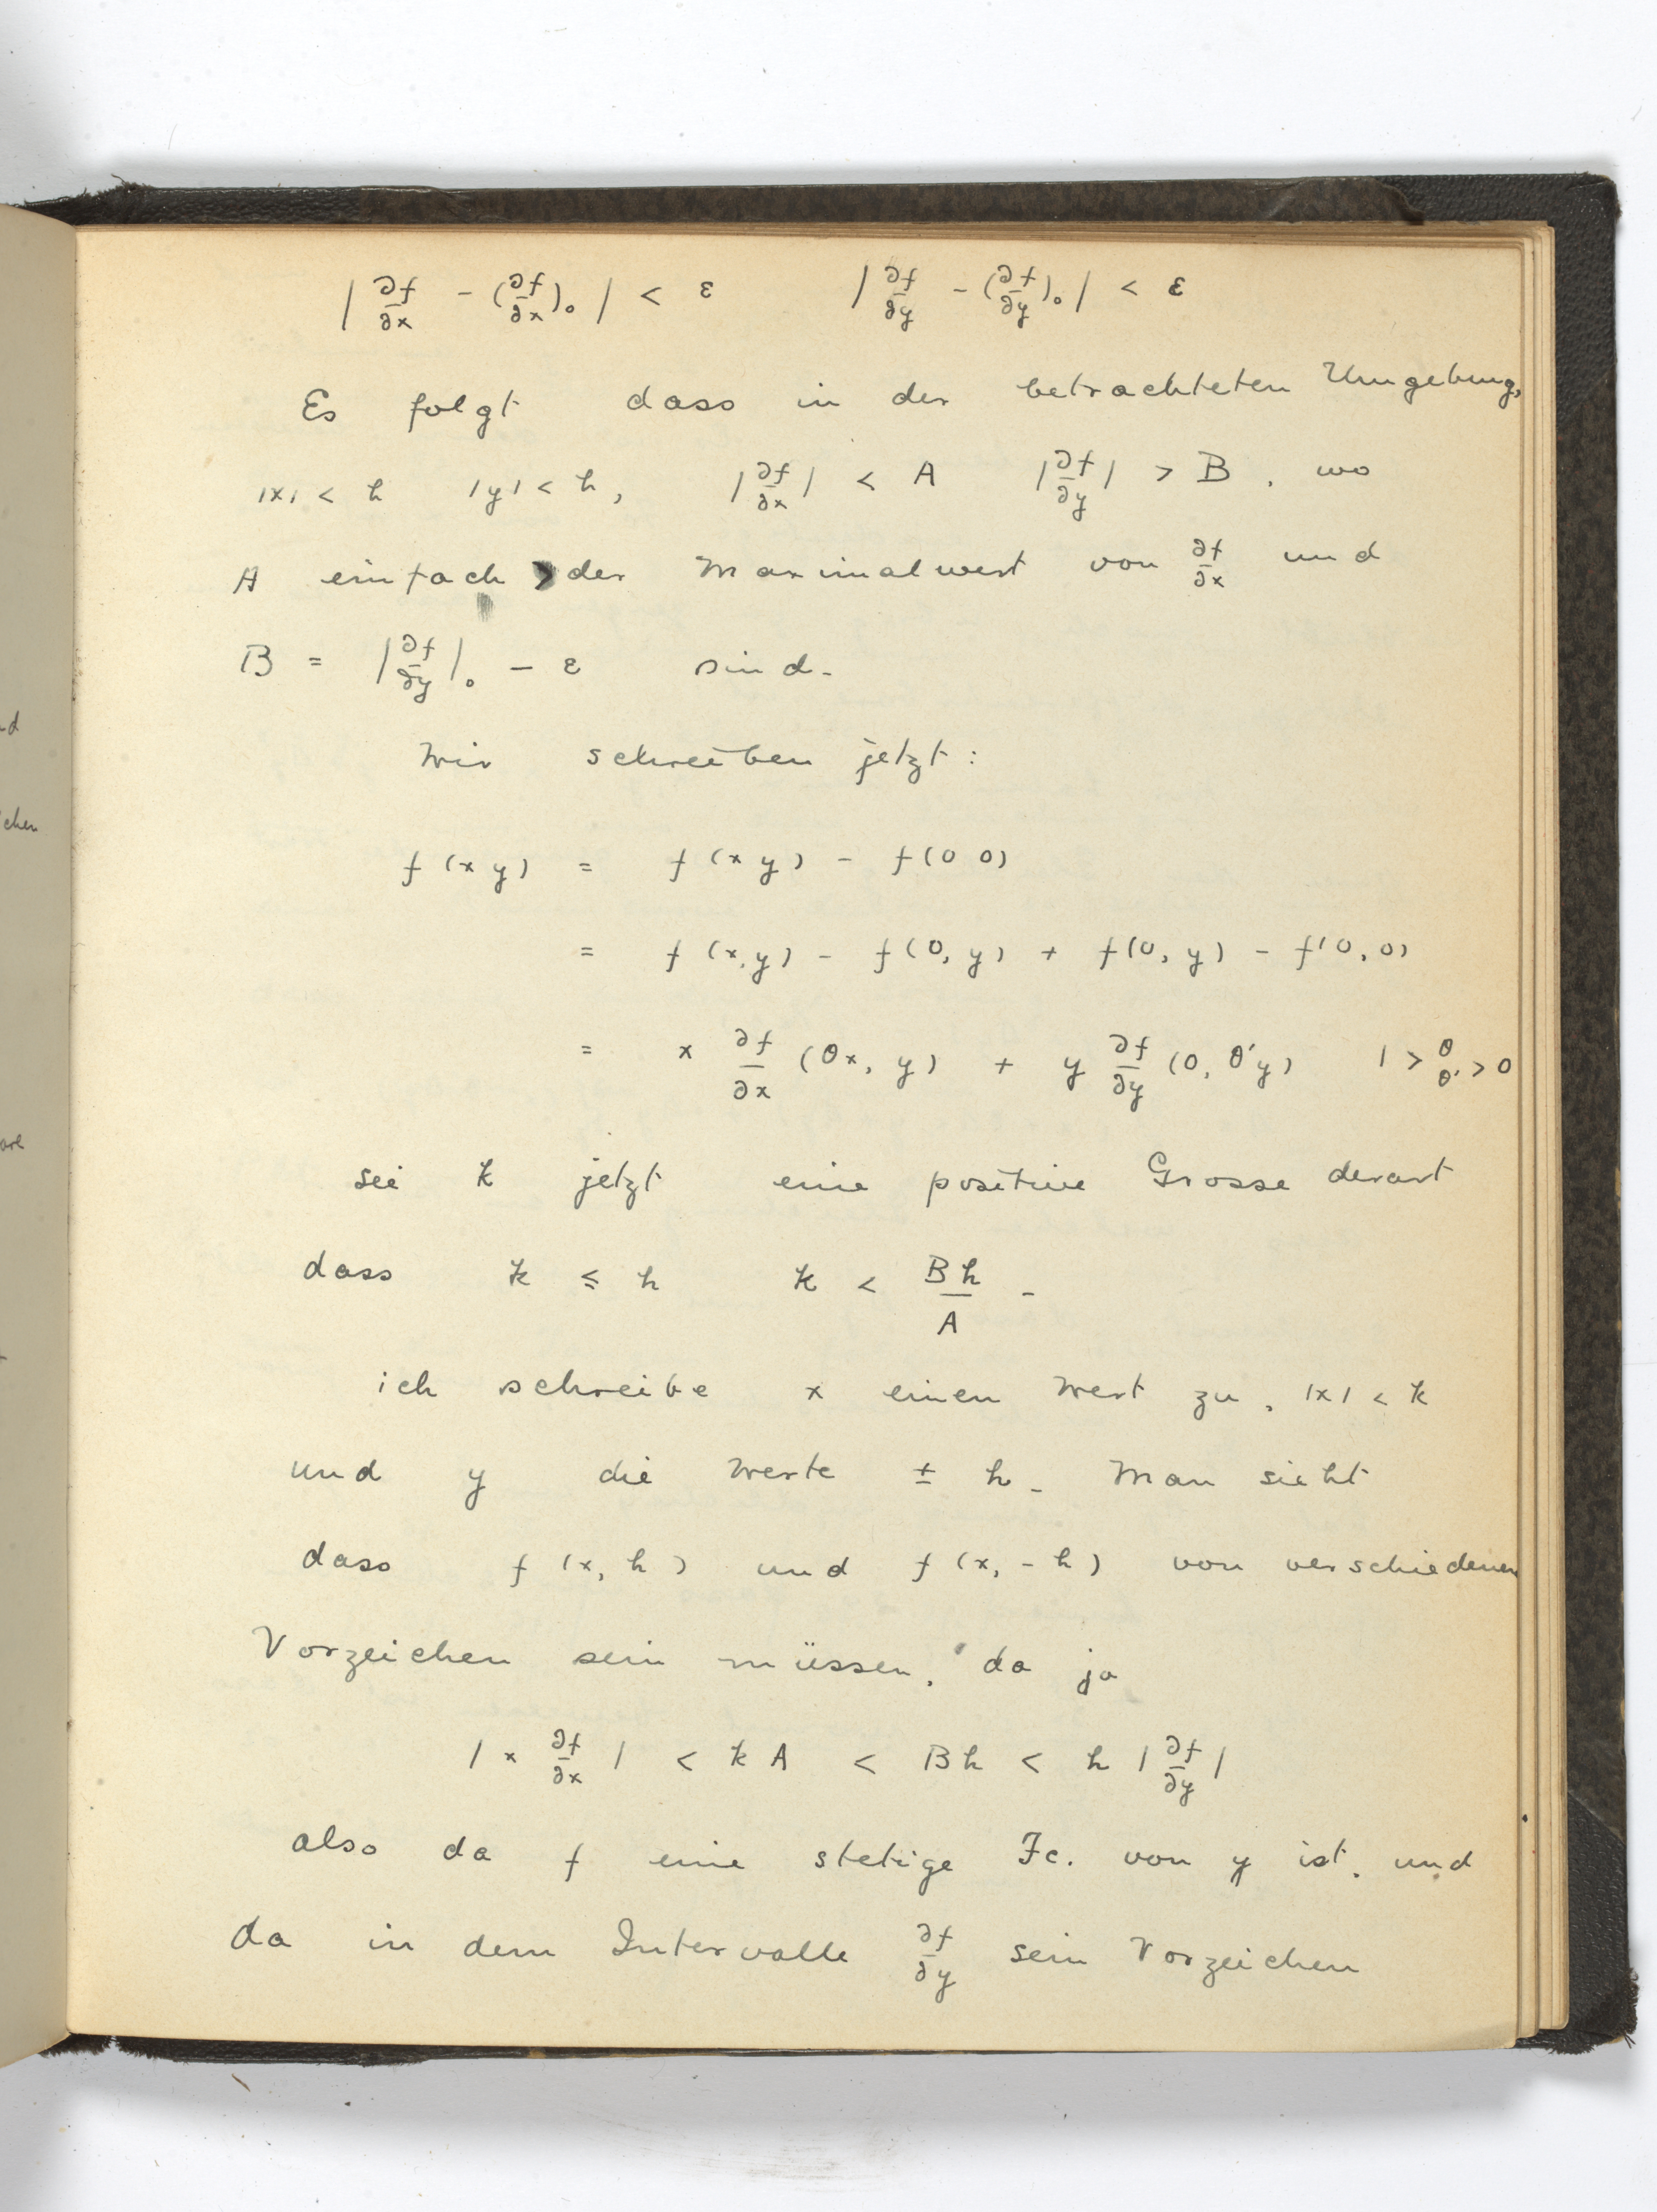 | ∂f/∂x − (∂f/∂x)₀ | < ε | ∂f/∂y − (∂f/∂y)₀ | < ε
Es folgt dass in der betrachteten Umgebung,
|x| < h |y| < h, |∂f/∂x| < A |∂f/∂y| > B, wo
A einfach der Maximalwert von ∂f/∂x und
B = |∂f/∂y|₀ − ε sind.
Wir schreiben jetzt:
f (x y) = f (x y) − f(0 0)
= f (x, y) − f(0, y) + f(0, y) − f(0, 0)
= x ∂f/∂x (θx, y) + y ∂f/∂y (0, θ'y) 1 > θ θ' > 0
sei k jetzt eine positive Grosse derart
dass k ≤ h k < Bh/A .
ich schreibe x einen Wert zu, |x| < k
und y die Werte ± h. Man sieht
dass f (x, h) und f (x, − h) von verschiedenen
Vorzeichen sein müssen, da ja
| x ∂f/∂x | < k A < B h < h | ∂f/∂y |
also da f eine stetige Fc. von y ist, und
da in dem Intervalle ∂f/∂y sein Vorzeichen